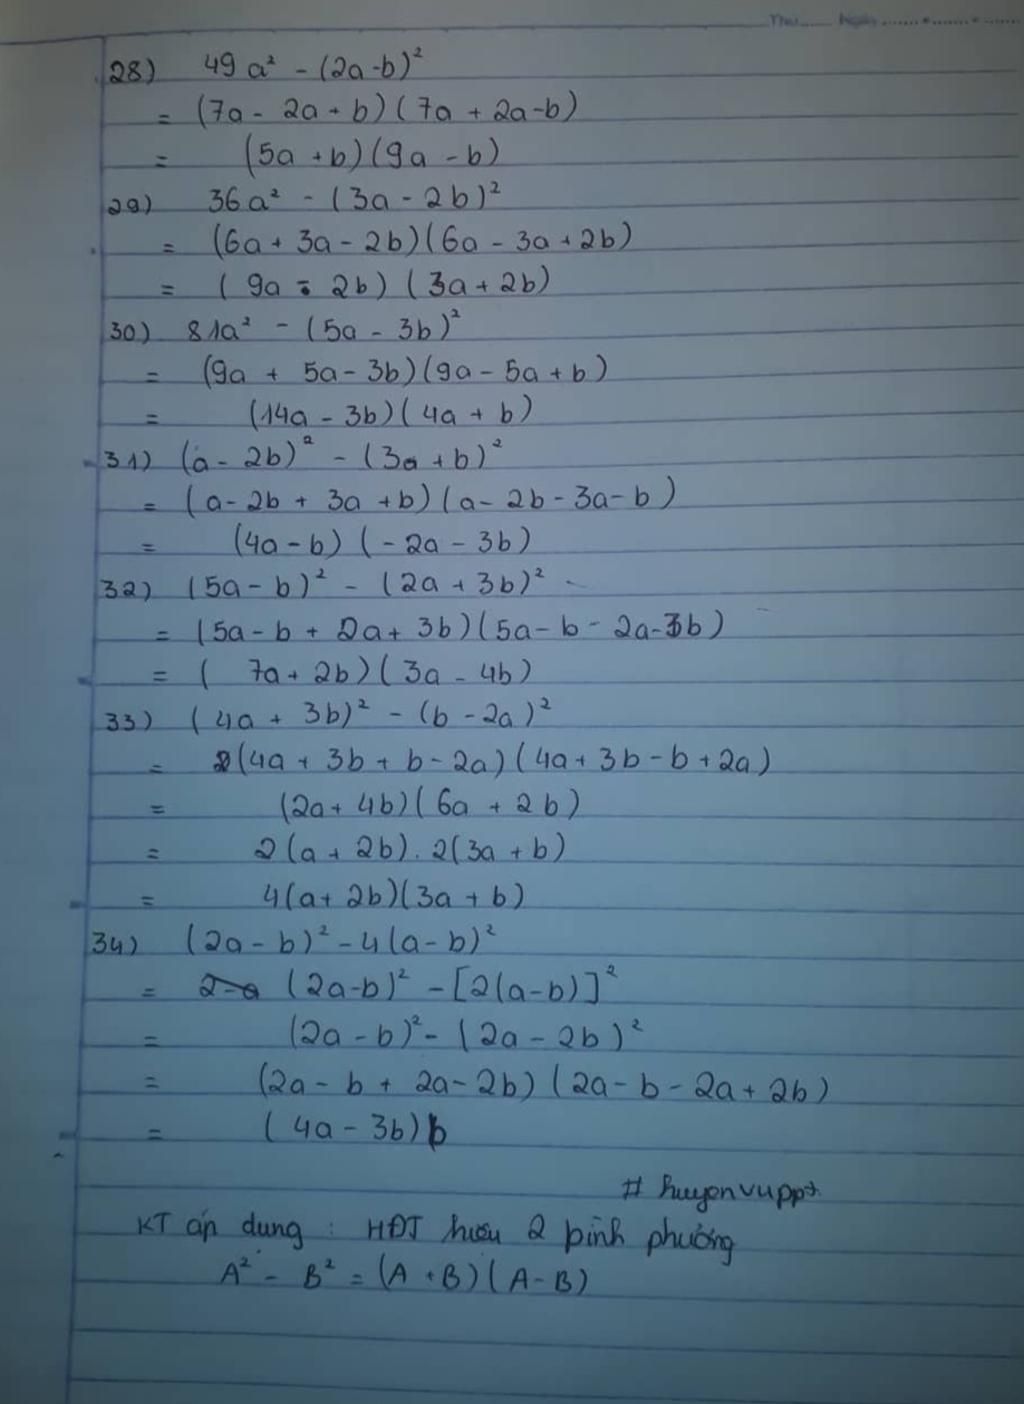 Thứ Ngày
28) 49 a² - (2a-b)²
= (7a - 2a + b) (7a + 2a-b)
= (5a +b) (9a - b)
29) 36a² - (3a - 2b)²
= (6a + 3a - 2b) (6a - 3a + 2b)
= ( 9a - 2b) (3a + 2b)
30) 81a² - (5a - 3b)²
= (9a + 5a - 3b) (9a - 5a + b)
= (14a - 3b) (4a + b)
31) (a - 2b)² - (3a + b)²
= (a - 2b + 3a + b) (a - 2b - 3a - b)
= (4a - b) (-2a - 3b)
32) (5a - b)² - (2a + 3b)²
= (5a - b + 2a + 3b) (5a - b - 2a - 3b)
= ( 7a + 2b) (3a - 4b)
33) (4a + 3b)² - (b - 2a)²
= (4a + 3b + b - 2a) (4a + 3b - b + 2a)
= (2a + 4b) (6a + 2b)
= 2(a + 2b) . 2(3a + b)
= 4(a + 2b) (3a + b)
34) (2a - b)² - 4(a - b)²
= (2a-b)² - [2(a-b)]²
= (2a - b)² - (2a - 2b)²
= (2a - b + 2a - 2b) (2a - b - 2a + 2b)
= (4a - 3b) b
# huyenvuppt
KT áp dụng : HĐT hiệu 2 bình phương
A² - B² = (A + B) (A - B)